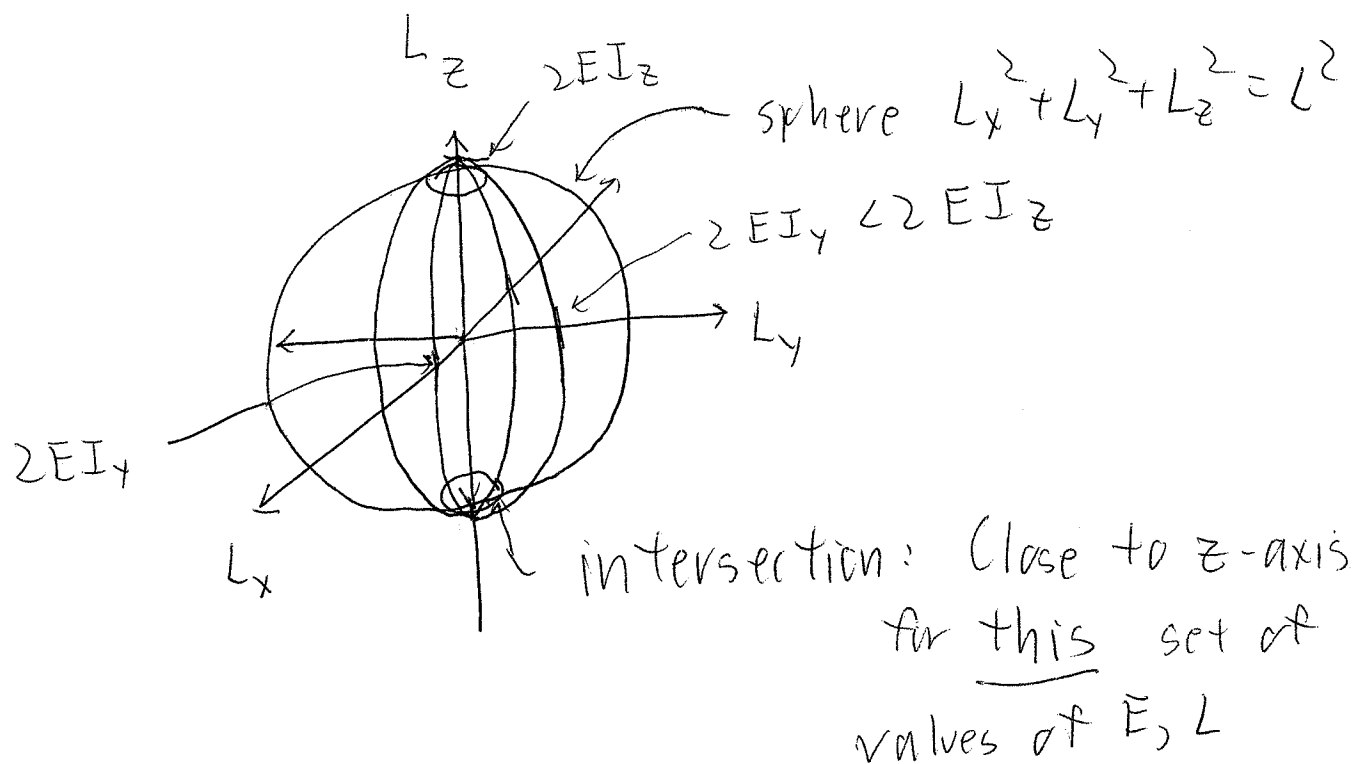 L_z
2EI_z
sphere L_x^2 + L_y^2 + L_z^2 = L^2
2EI_y < 2EI_z
L_y
2EI_y
L_x
intersection: Close to z-axis
for this set of
values of E, L